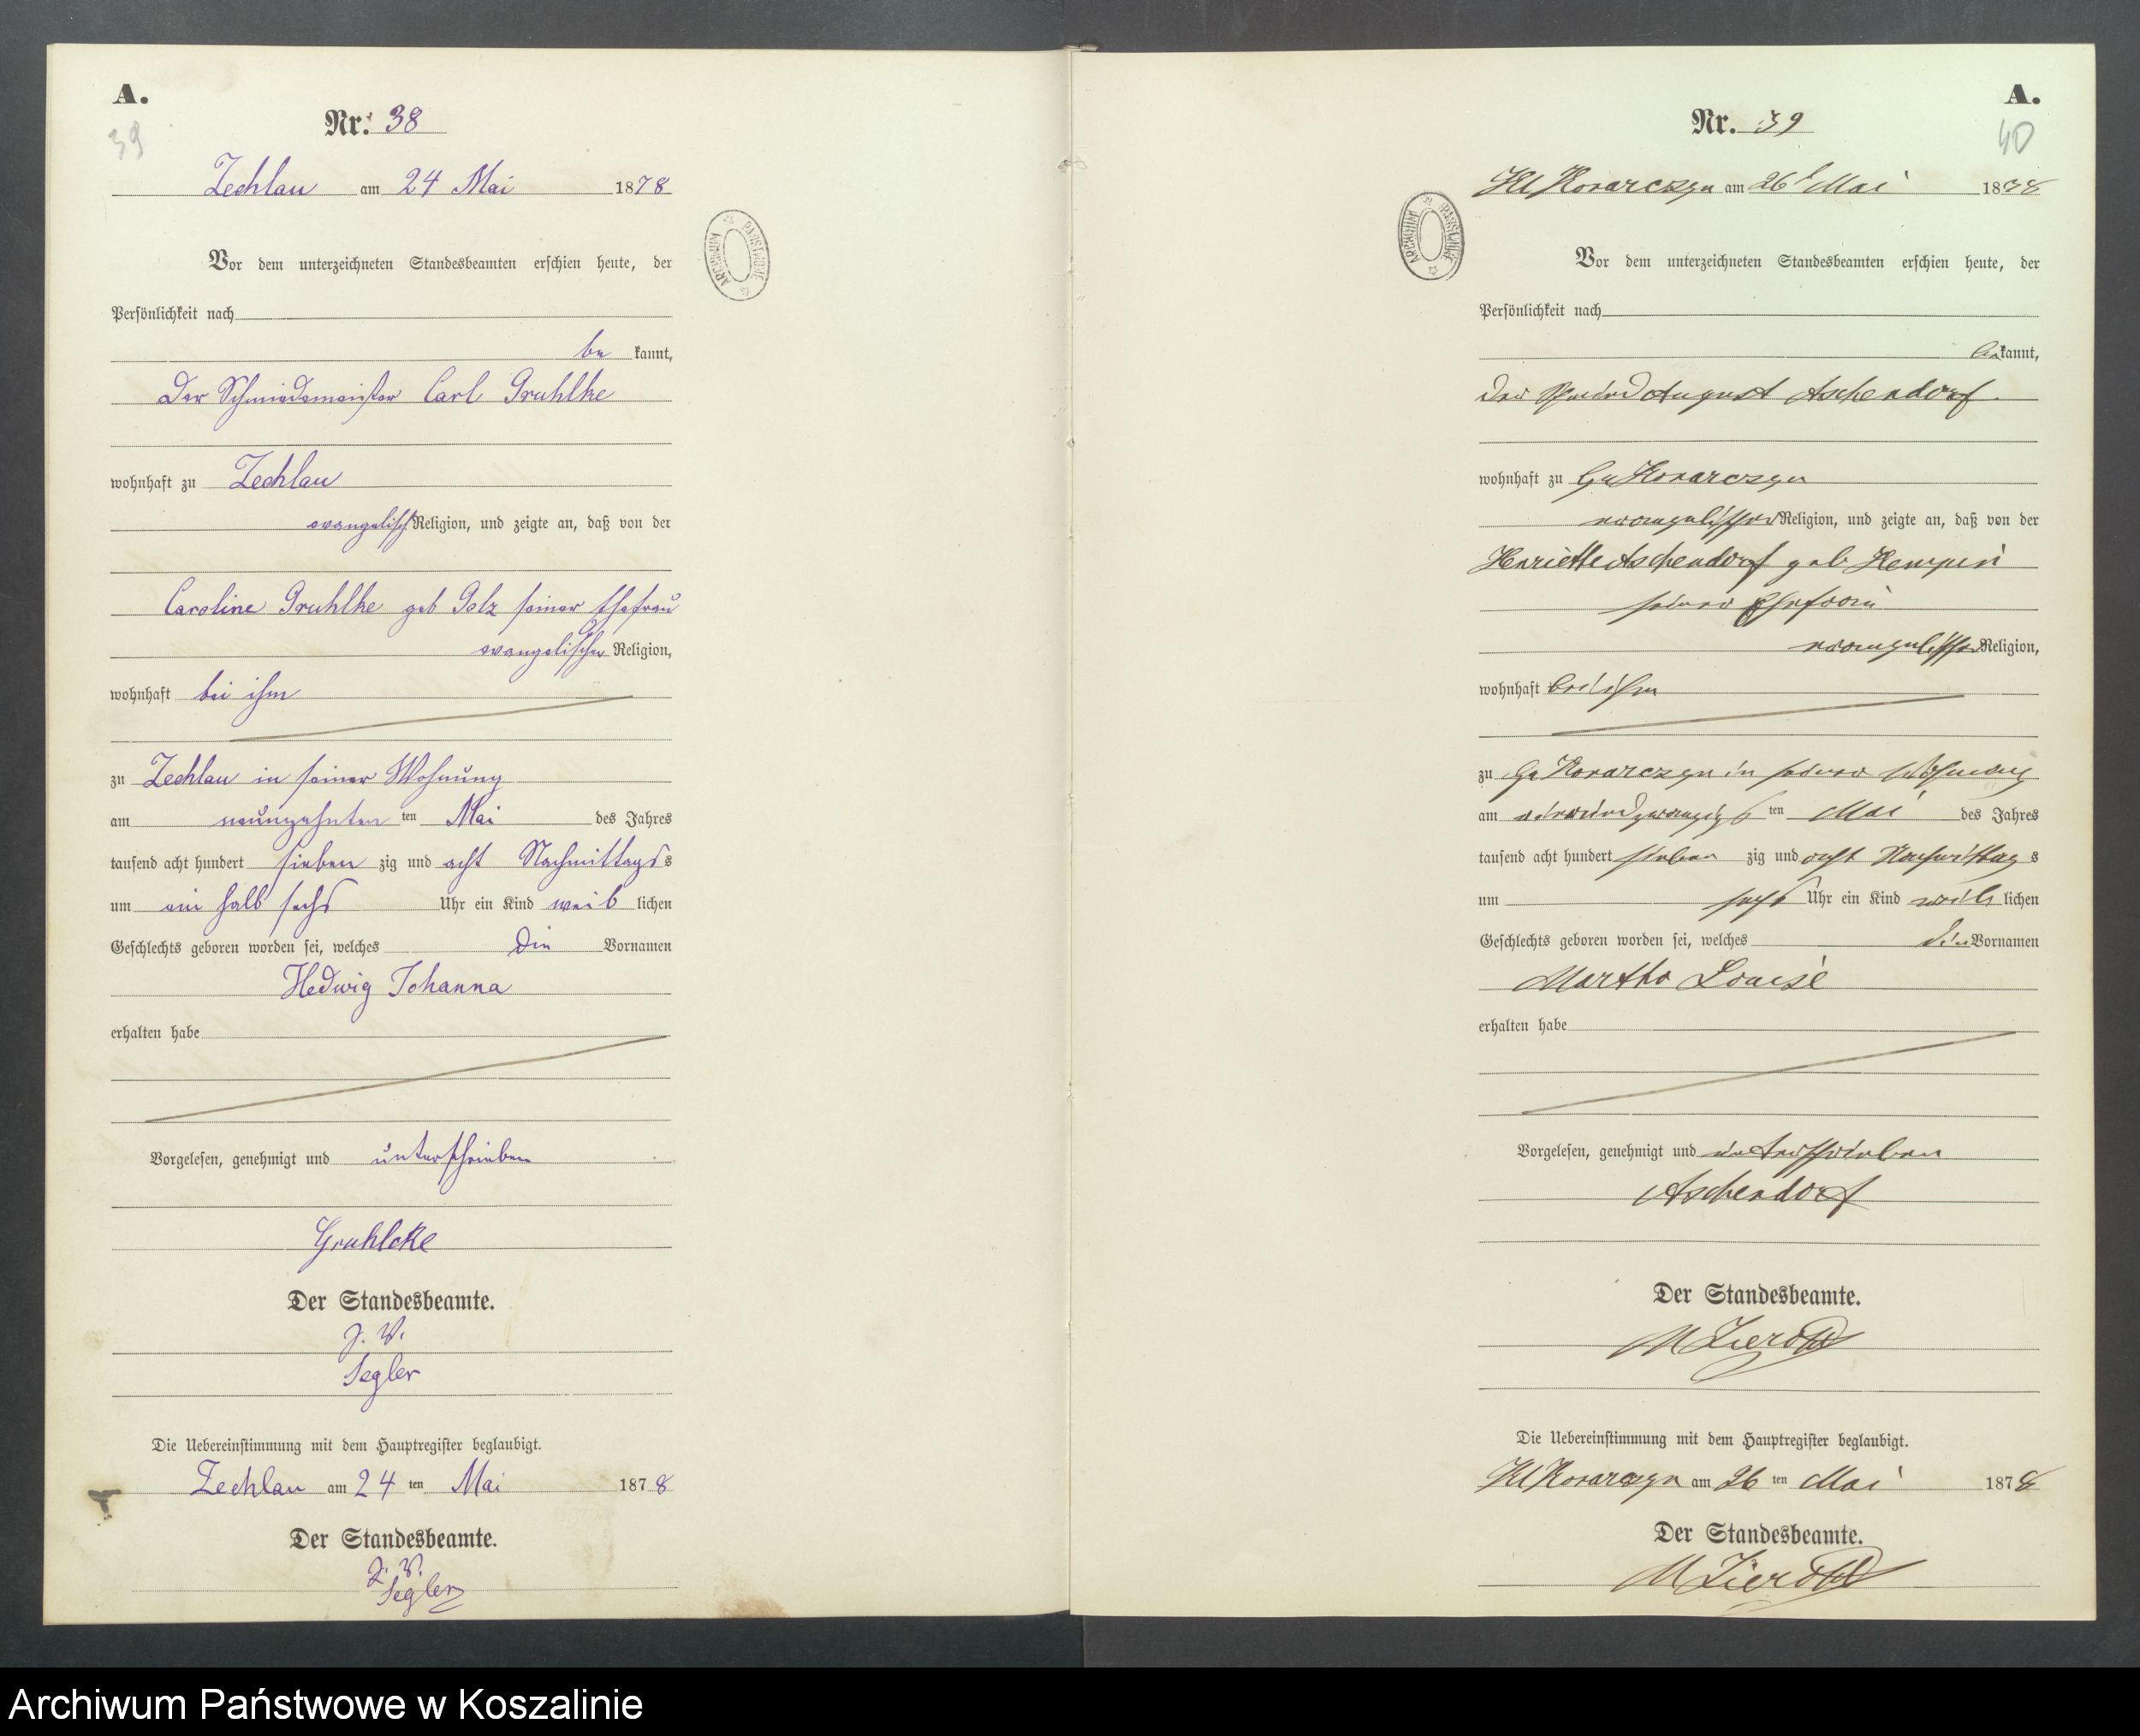 A.
39
Nr. 38
Zechlau am 24 Mai 1878
Vor dem unterzeichneten Standesbeamten erschien heute, der
Persönlichkeit nach
be kannt,
der Schmiedemeister Carl Gruhlke
wohnhaft zu Zechlau
evangelisch Religion, und zeigte an, daß von der
Caroline Gruhlke geb Golz seiner Ehefrau
evangelischer Religion,
wohnhaft bei ihm
zu Zechlau in seiner Wohnung
am neunzehnten ten Mai des Jahres
tausend acht hundert sieben zig und acht Nachmittags s
um ein halb sechs Uhr ein Kind weib lichen
Geschlechts geboren worden sei, welches die Vornamen
Hedwig Johanna
erhalten habe
Vorgelesen, genehmigt und unterschrieben
Gruhlcke
Der Standesbeamte.
J. V.
Segler
Die Uebereinstimmung mit dem Hauptregister beglaubigt.
Zechlau am 24 ten Mai 1878
Der Standesbeamte.
J. V.
Segler
ARCHIWUM PAŃSTWOWE
A.
40
Nr. 39
Kl Konarczyn am 26t Mai 1878
Vor dem unterzeichneten Standesbeamten erschien heute, der
Persönlichkeit nach
be kannt,
der Schmied August Aschendorf
wohnhaft zu Gr Konarczyn
evangelischer Religion, und zeigte an, daß von der
Henriette Aschendorf geb Hempen
seiner Ehefrau
evangelischer Religion,
wohnhaft bei ihm
zu Gr Konarczyn in seiner Wohnung
am vierundzwanzigs ten Mai des Jahres
tausend acht hundert sieben zig und acht Nachmittag s
um sechs Uhr ein Kind weib lichen
Geschlechts geboren worden sei, welches die Vornamen
Martha Louise
erhalten habe
Vorgelesen, genehmigt und unterschrieben
Aschendorf
Der Standesbeamte.
Die Uebereinstimmung mit dem Hauptregister beglaubigt.
Kl Konarczyn am 26 ten Mai 1878
Der Standesbeamte.
ARCHIWUM PAŃSTWOWE
Archiwum Państwowe w Koszalinie